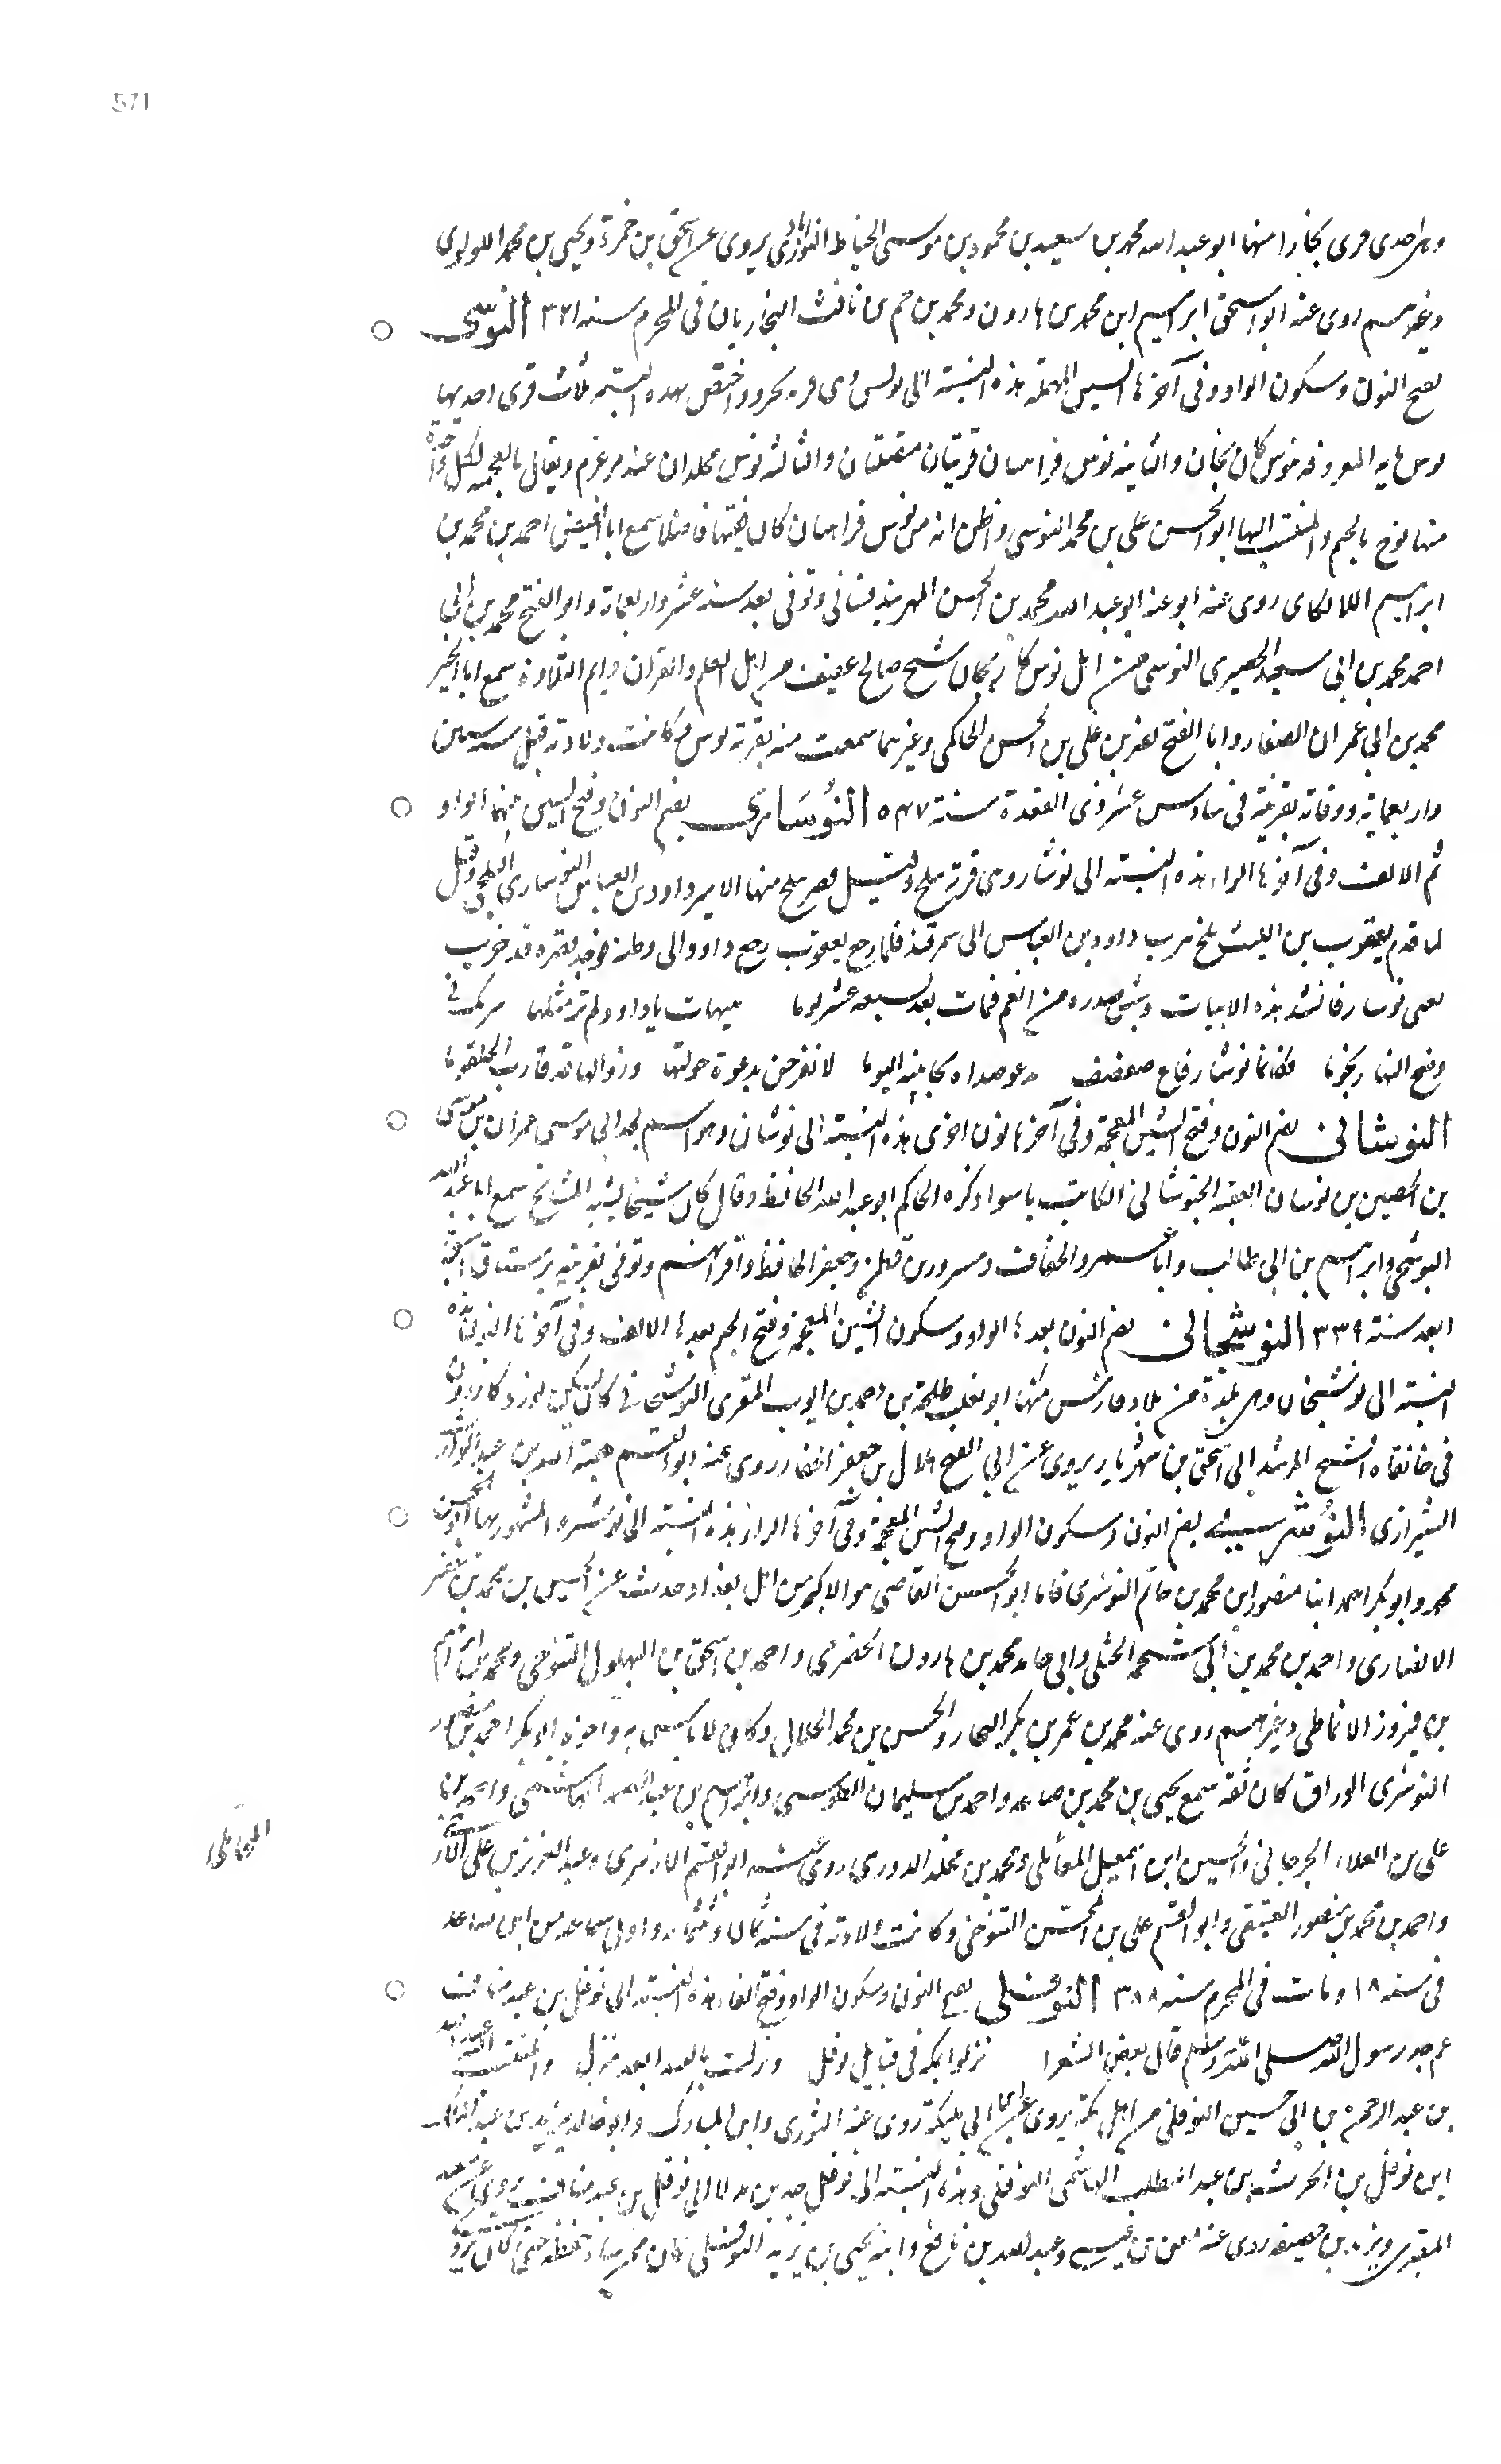 571
وهي احدى قرى بخارا منها ابو عبد الله محمد بن سعيد بن محمود بن موسى الخياط النوزاباذي يروي عن اسحق بن حمزة ويحيى بن محمد اللولوى
وغيرهم روى عنه ابو اسحق ابرهيم ابن محمد بن هارون ومحمد بن حم بن ناقب البخاريان في المحرم سنة ٣٢١ النوسي
بفتح النون وسكون الواو وفي آخرها السين المهملة هذه النسبة الى نوس وهى قرية بمرو واختص بهذه النسبة ثلاث قرى احديها
نوس المعروفة بنوس كارنجان والثانية نوس فراهينان قريتان متصلتان والثالثة نوس مخلدان عند مرغرم ويقال بالعجمية لكل واحدة
منها نوج بالجيم والمنتسب اليها ابو الحسن علي بن محمد النوسي واظن انه من نوس فراهينان كان فقيها فاضلا سمع ابا الفيض احمد بن محمد بن
ابراهيم اللالكاى روى عنه ابو عبد الله محمد بن الحسن المهربندقشاني وتوفى بعد سنة عشر واربعماية وابو الفتح محمد بن ابي
احمد محمد بن ابي سعيد الحصيرى النوسي من اهل نوس كارنجان شيخ صالح عفيف من اهل العلم والقران دايم التلاوة سمع ابا الخير
محمد بن ابي عمران الصفار وابا الفتح نصر بن علي بن الحسن الحاكمي وغيرهما سمعت منه بقرية نوس وكانت ولادته قبل سنة ستين
واربعماية ووفاته بقريته في سادس عشر ذى القعدة سنة ٥٤٧ النوساري بضم النون وفتح السين بينهما الواو
ثم الالف وفي آخرها الراء هذه النسبة الى نوشار وهى قرية ببلخ وقيل قصر ببلخ منها الامير داود بن العباس النوسارى البلخي وقيل
لما قدم يعقوب بن الليث بلخ هرب داود بن العباس الى سمرقند فلما رجع يعقوب رجع داود الى وطنه فوجد قصره قد خرب
يعنى نوسار فانشد هذه الابيات وشق صدره من الغم فمات بعد سبعة عشر يوما هيهات يا داود لم تر مثلها سيريك في
وضح النهار نجوما فكانما نوشار قاع صفصف يدعو صداه بجانبيه البوما لا تفرحن بدعوة خولتها وزوالها قد قارب الحلقوما
النوشاني بضم النون وفتح الشين المعجمة وفي آخرها نون اخرى هذه النسبة الى نوشان وهو اسم لجد ابي موسى عمران بن موسى
بن الحصين بن نوسان الفقيه الخبوشاني الكاتب باستوا ذكره الحاكم ابو عبد الله الحافظ وقال كان شيخا يشبه المشايخ سمع ابا عبد الله
البوشنجي وابراهيم بن ابي طالب وابا عمرو الخفاف ومسدد بن قطن وجعفر الحافظ واقرانهم وتوفى بقريته برستاق استوا
بعد سنة ٣٣٩ النوشجاني بضم النون بعدها الواو وسكون الشين المعجمة وفتح الجيم بعدها الالف وفي آخرها النون هذه
النسبة الى نوشنجان وهى بلدة من بلاد فارس منها ابو تغلب طلحة بن احمد بن ايوب المقرى النوشجاني كان يسكن نورد كازرون
في خانقاه الشيخ المرشد ابي اسحق بن شهريار يروى عن ابي الفتح هلال بن جعفر الحفار روى عنه ابو القسم هبة الله بن عبد الوارث
الشيرازى النوشري بضم النون وسكون الواو وفتح الشين المعجمة وفي آخرها الراء هذه النسبة الى نوشر والمشهور بها ابو الحسن
محمد وابو بكر احمد ابنا منصور بن محمد بن حاتم النوشرى فاما ابو الحسن القاضي هو الاكبر من اهل بغداد حدث عن الحسين بن محمد بن عفير
الانصارى واحمد بن محمد بن ابي شحمة الختلي وابي حامد محمد بن هارون الحضرمى واحمد بن اسحق بن البهلول التنوخى ومحمد بن ابرهيم
بن فيروز الانماطى وغيرهم روى عنه محمد بن عمر بن بكر النجار والحسن بن محمد الخلال وكان لا باس به واخوه ابو بكر احمد بن منصور
النوشرى الوراق كان ثقة سمع يحيى بن محمد بن صاعد واحمد بن سليمان الطوسى وابرهيم بن عبد الصمد الهاشمى واحمد بن
على بن العلاء الجرجاني والحسين ابن اسمعيل المحاملي ومحمد بن مخلد الدورى روى عنه ابو القسم الازهرى وعبد العزيز بن علي الازجي
المحاملي
واحمد بن محمد بن منصور العتيقي وابو القسم على بن المحسن التنوخي وكانت ولادته في سنة ثمان وثلثماية واول سماعه من ابن صاعد
في سنة ١٨ ومات في المحرم سنة ٣٨٨ النوفلي بفتح النون وسكون الواو وفتح الفاء هذه النسبة الى نوفل بن عبد مناف
عم جد رسول الله صلى الله عليه وسلم قال بعض الشعرا نزلوا بمكة في قبايل نوفل ونزلت بالبيداء ابعد منزل والمنتسب اليه عبد الله
بن عبد الرحمن بن ابي حسين النوفلي من اهل مكة يروى عن ابن ابي مليكة روى عنه الثورى وابن المبارك وابو خالد يزيد بن عبد الملك
ابن نوفل بن الحرث بن عبد المطلب الهاشمى النوفلي وهذه النسبة الى نوفل جد بن هذا لا الى نوفل بن عبد مناف يروى عن سعيد
المقبرى ويزيد بن خصيفة روى عنه معن بن عيسى وعبد الله بن نافع وابنه يحيى بن يزيد النوفلي كان ممن ساء حفظه حتى كان يروى